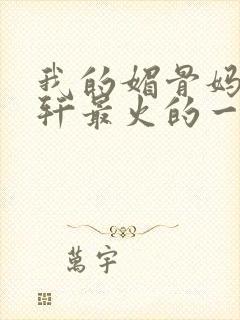 我的媚骨妈
轩最火的一
萬宇